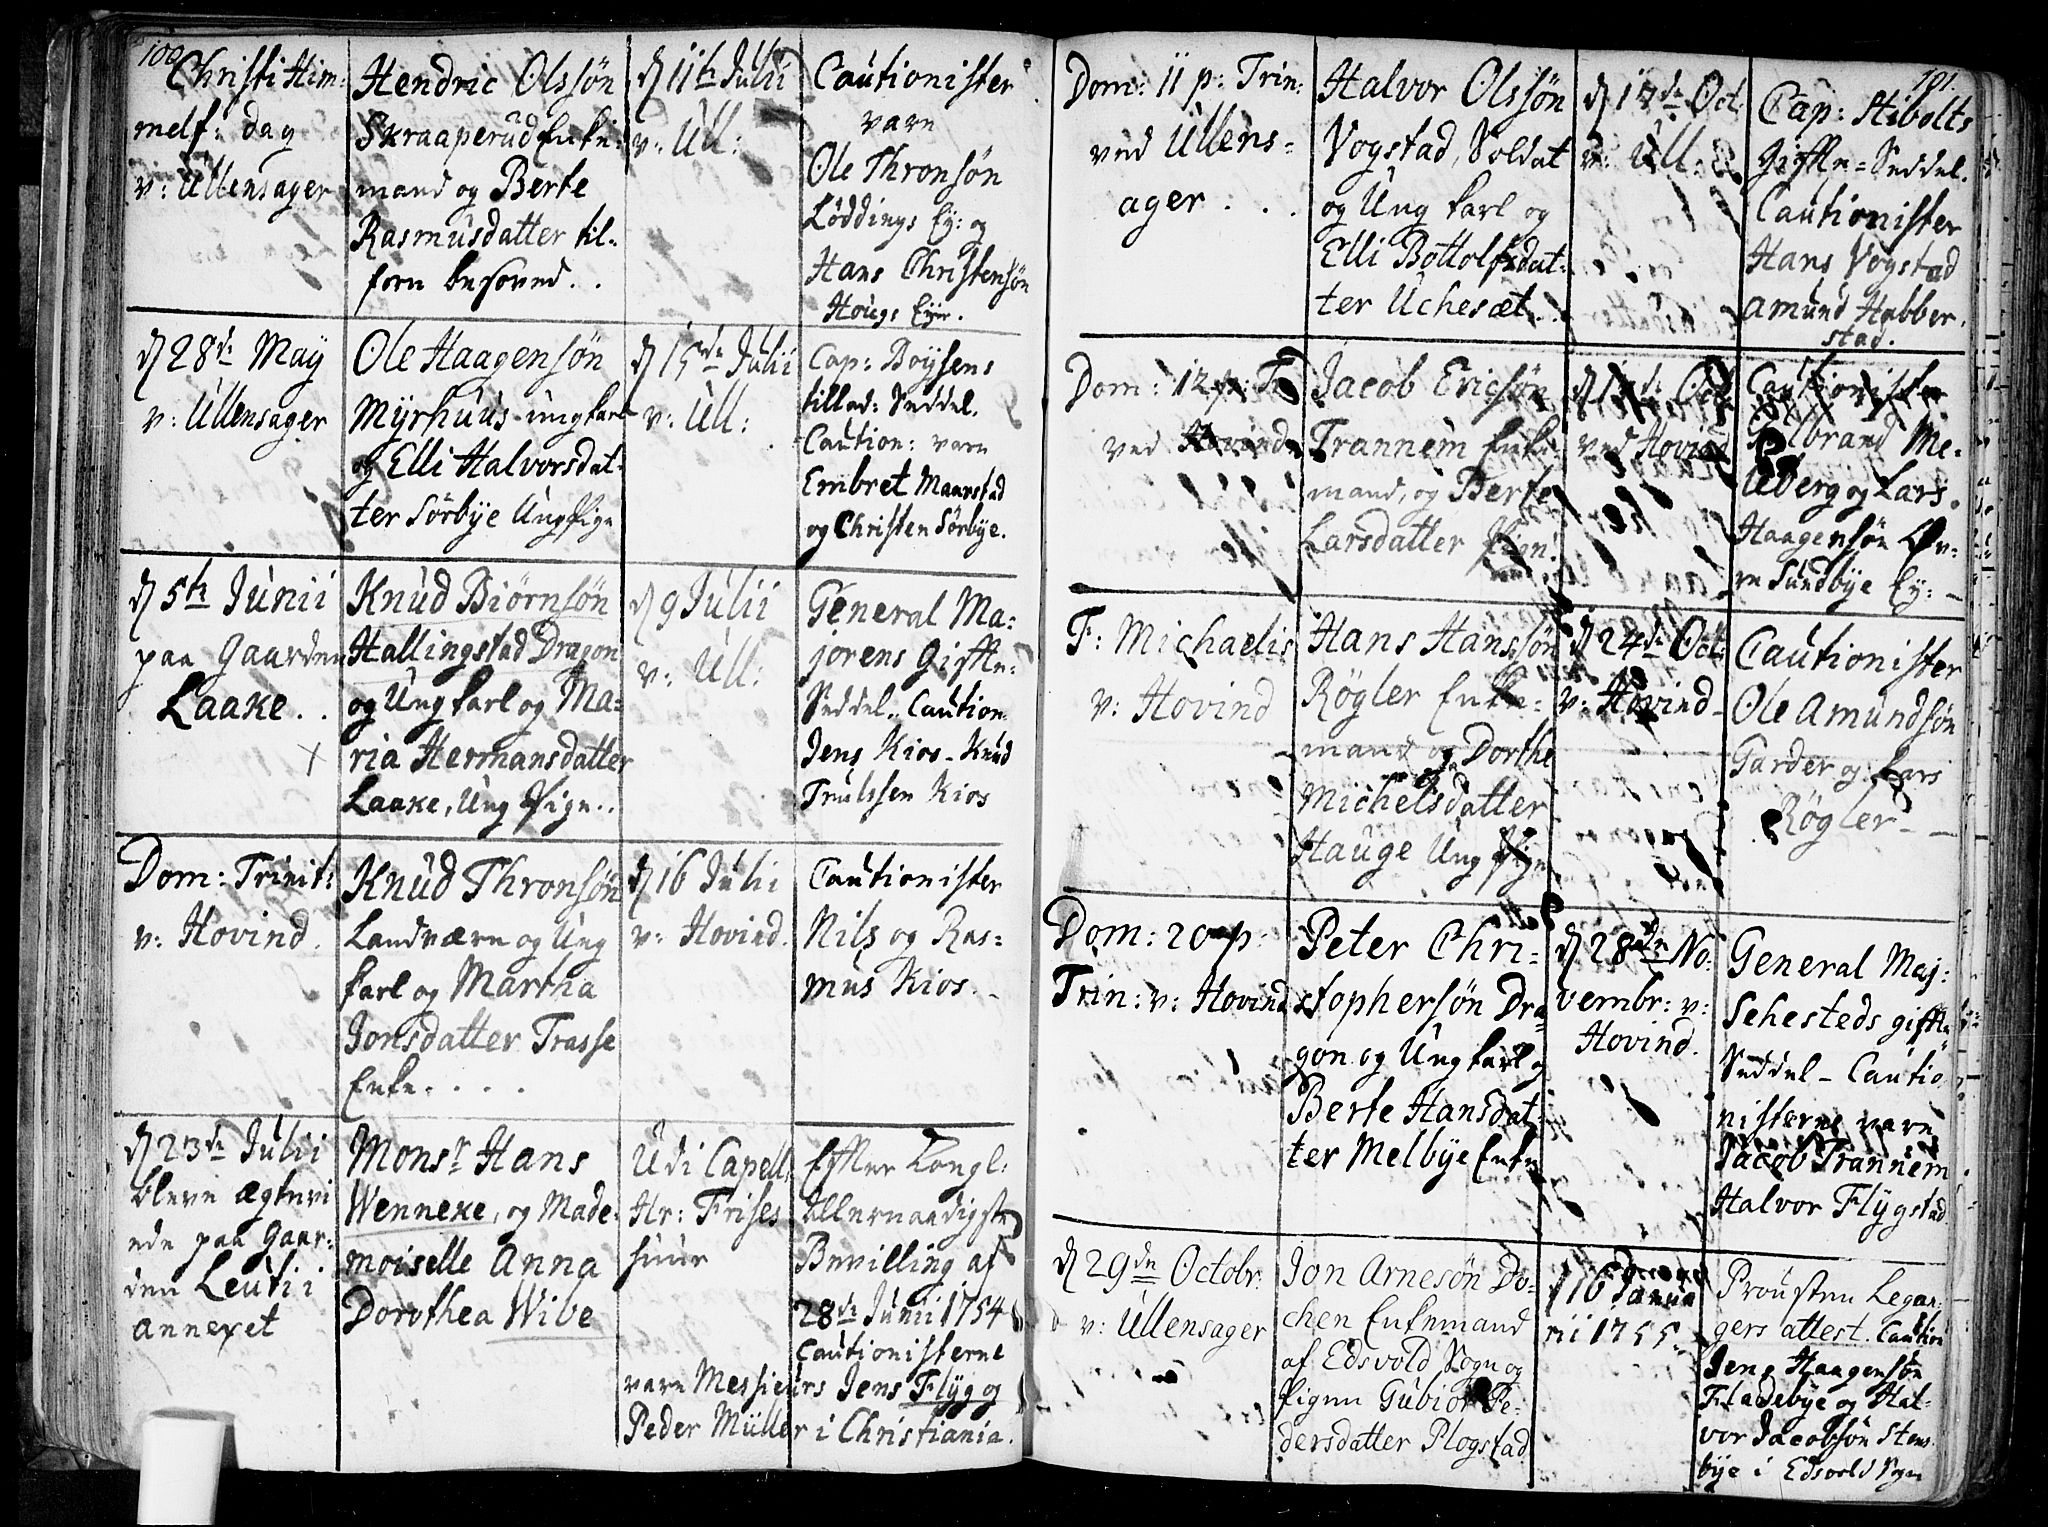 100.
Christi Him-
melf: dag
v: Ullensager
Hendric Olssøn
Skraaperud Enke-
mand og Berte
Rasmusdatter til-
forn besoved..
d 11te Julii
v: Ull:
Cautionister
vare
Ole Thronsøn
Løddings Ey: og
Hans Christensøn
Hougs Eyer.
d 28de May
v: Ullensager
Ole Haagensøn
Myrhuus ungkarl
og Elli Halvorsdat-
ter Sørbye Ungpige
d 15de Julii
v: Ull:
Cap: Boysens
tillad: Seddel.
Caution: vare
Embret Maarstad
og Christen Sørbye.
d 5te Junii
paa Gaarden
Laake..
Knud Biørnsøn
Hallingstad Dragon
og Ungkarl og Ma-
ria Hermansdatter
Laake, Ung Pige..
d 9 Julii
v: Ull:
General Ma-
jorens Gifte-
Seddel.. Caution.
Jens Kios - Knud
Trulssen Kios
Dom: Trinit:
v: Hovind.
Knud Thronsøn
Landværn og Ung
karl og Martha
Jonsdatter Trasse
Enke....
d 16 Julii
v: Hovind.
Cautionister
Nils og Ras-
mus Kios..
d 23de Julii
bleve ægtevi
ede paa Gaar-
den Leut i
annexet
Monsr Hans
Wenneke, og Made-
moiselle Anna
Dorothea Wibe
Udi Capell:
Hr: Frises
huus
Efter Kongl:
Allernaadigste
Bevilling af
28de Junii 1754
Cautionisterne
vare Messieurs Jens Flyg og
Peder Müller i Christiania.
101.
Dom: 11 p: Trin:
ved Ullens-
ager...
Halvor Olssøn
Vogstad, Soldat
og Ung karl og
Elli Bottolfsdat-
ter Uchesæt..
v: Ull:
Cap: Sibolts
Gifte-Seddel.
Cautionister
Hans Vogstad
Amund Habber-
stad.
Dom: 12 p: Tr
ved Hovind
Jacob Ericsøn
Trannem Enke-
mand, og Berte
Larsdatter Pige:
ved Hovind
Cautionister
Gulbrand Me-
lberg og Lars
Haagensøn Øv-
re Sundbye Ey: -
F: Michaelis
v: Hovind
Hans Hanssøn
Røgler Enke-
mand og Dorthe
Michelsdatter
Hauge Ung Pige
d 24de Oct:
v: Hovind
Cautionister
Ole Amundsøn
Garder og Lars
Røgler - -
Dom: 20 p:
Trin: v: Hovind
Peter Chri-
stophersøn Dra-
gon og Ungkarl og
Berte Hansdat-
ter Melbye Enke
d 28de No-
vembr: v:
Hovind.
General Maj:
Sehesteds gifte
Seddel - Cautio
nisterne vare
Jacob Trannem
Halvor Flygstad
d 29de Octobr:
v: Ullensager
Jon Arnesøn Do-
chen Enkemand
af Edsvold Sogn og
Pigen Gubiør Pe-
dersdatter Plogstad
d 16 Janua
rii 1755.
Prousten Legan-
gers attest. Caution
Jens Haagensøn
Fladebye og Hal-
vor Jacobsøn Stens-
bye i Edsvold Sogn